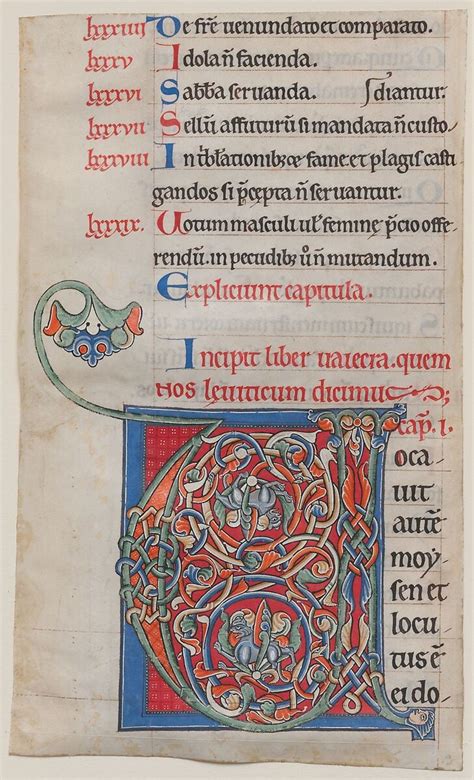 lxxxiiii De fr̄e venundato et comparato.
lxxxv Idola n̄ facienda.
lxxxvi Sabb̄a seruanda. diantur.
lxxxvii Sellū affuturū si mandata n̄ custo
lxxxviii In t̄blationibȝ fame et plagis casti
gandos si p̄cepta n̄ seruantur.
lxxxix. Uotum masculi ul̄ feminę p̄cio offe
rendū. in pecudibȝ ū n̄ mutandum.
Expliciunt capitula.
Incipit liber vaiecra. quem
nos leuiticum dicimus
cap̄. i.
V
oca
uit
autē
moy
sen et
locu
tus ē
ei do